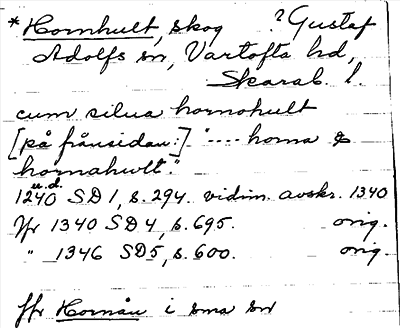 *Hornhult, skog ? Gustaf
Adolfs sn, Vartofta hd,
Skarab. l.
cum silua hornohult
[på frånsidan:] "---- horna &
hornahwlt."
u.d.
1240 SD 1, s. 294. vidim. avskr. 1340
Jfr 1340 SD 4, s. 695. orig.
" 1346 SD 5, s. 600. orig.
Jfr Hornån i sma sn